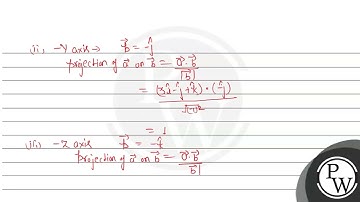 (ii) -Y axis → b⃗ = -ĵ
projection of a⃗ on b⃗ = a⃗·b⃗ / |b⃗|
= (3î - ĵ + k̂) · (-ĵ) / √(-1)²
= 1
(iii) -Z axis b⃗ = -k̂
projection of a⃗ on b⃗ = a⃗·b⃗ / |b⃗|
PW